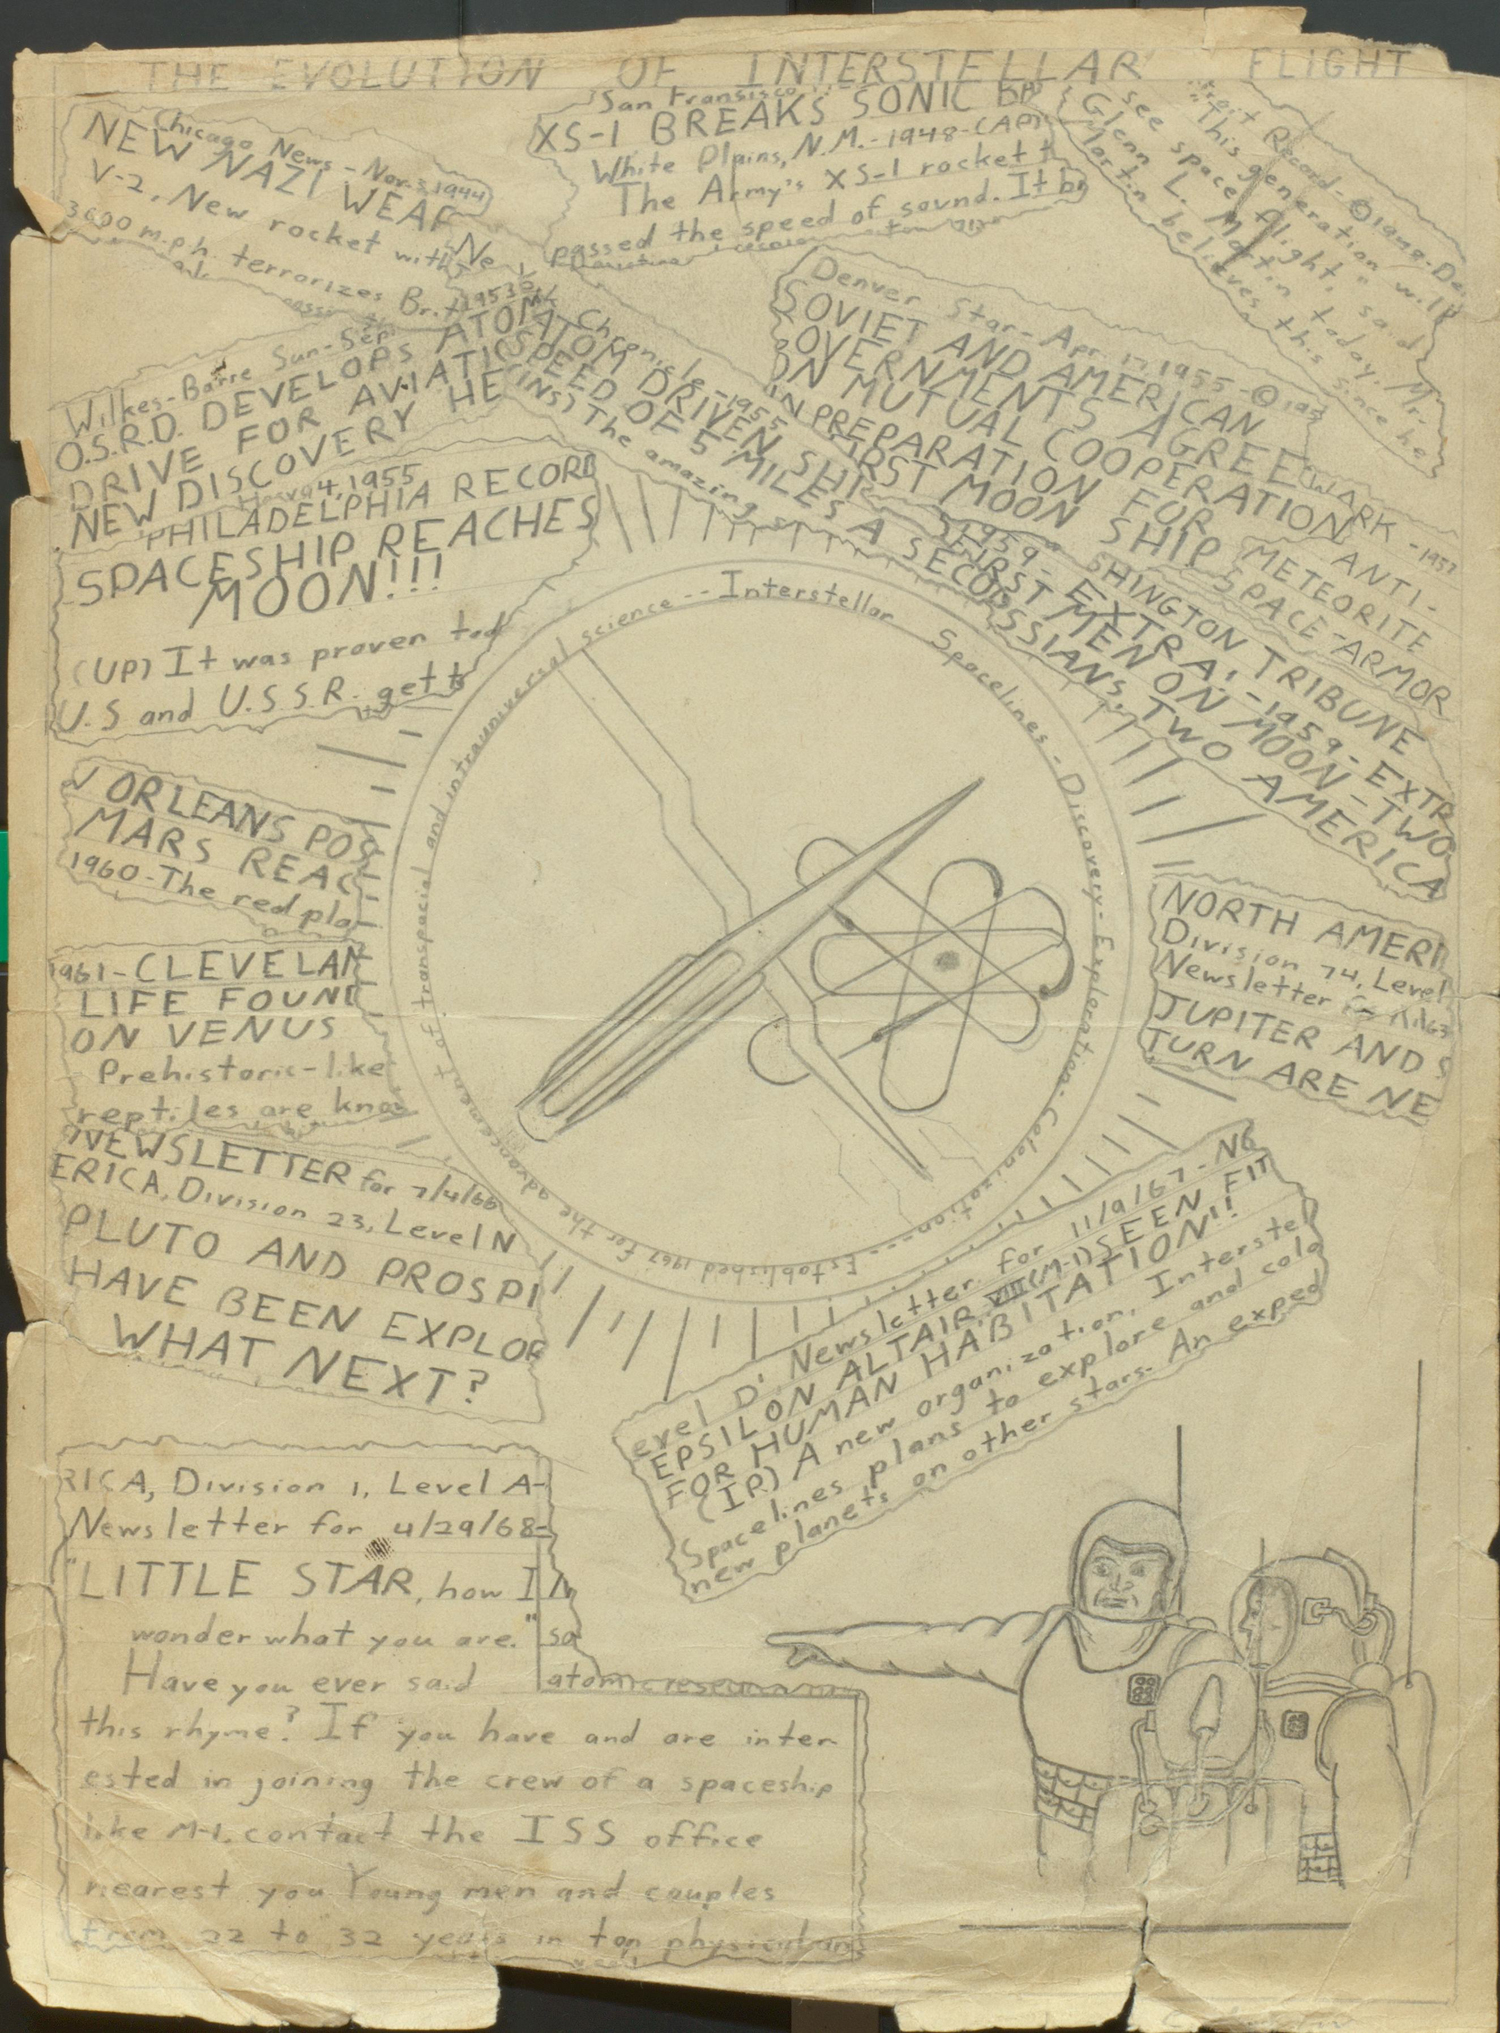 THE EVOLUTION OF INTERSTELLAR FLIGHT
Chicago News - Nov. 3, 1944
NEW NAZI WEAP
V-2, New rocket with
3600 m.p.h. terrorizes Br
San Fransisco
XS-1 BREAKS SONIC BA
White Plains, N.M.-1948-(AP)
The Army's XS-1 rocket
passed the speed of sound. It br
Record-©1949-De
"This generation will
see space flight," said
Glenn L. Martin today. Mr.
Martin believes this since he
Wilkes-Barre Sun-Sep
1953
O.S.R.D. DEVELOPS ATOM
DRIVE FOR AVIATI
NEW DISCOVERY HE
Chronicle-1955
ATOM DRIVEN SHI
SPEED OF 5 MILES A SECO
(INS) The amazing
Denver Star-Apr. 17, 1955-©
SOVIET AND AMERICAN
GOVERNMENTS AGREE
ON MUTUAL COOPERATION
IN PREPARATION FOR
FIRST MOON SHIP
WARK -1957
ANTI-
METEORITE
SPACE-ARMOR
4, 1955
PHILADELPHIA RECORD
SPACESHIP REACHES
MOON!!!
(UP) It was proven tod
U.S and U.S.S.R. get
SHINGTON TRIBUNE
1959-EXTRA!-1959-EXTR
FIRST MEN ON MOON-TWO
SSIANS, TWO AMERICA
Interstellar Spacelines-Discovery-Exploration-Colonization---Established 1967 for the advancement of transpacial and intrauniversal science--
W ORLEANS POS
MARS REAC
1960-The red pla
1961-CLEVELAN
LIFE FOUND
ON VENUS
Prehistoric-like
reptiles are know
NORTH AMERI
Division 74, Level
Newsletter
JUPITER AND S
TURN ARE NE
NEWSLETTER for 7/4/66
ERICA, Division 23, Level N
PLUTO AND PROSPI
HAVE BEEN EXPLOR
WHAT NEXT?
evel D: Newsletter for 11/9/67-NO
EPSILON ALTAIR VIII (M-1) SEEN FIT
FOR HUMAN HABITATION!!
(IP) A new organization, Interstel
Spacelines plans to explore and colo
new planets on other stars. An exped
RICA, Division 1, Level A-
Newsletter for 4/29/68-
"LITTLE STAR, how I
wonder what you are."
so
Have you ever said
atomic
this rhyme? If you have and are inter
ested in joining the crew of a spaceship
like M-1, contact the ISS office
nearest you Young men and couples
from 22 to 32 years in top physical